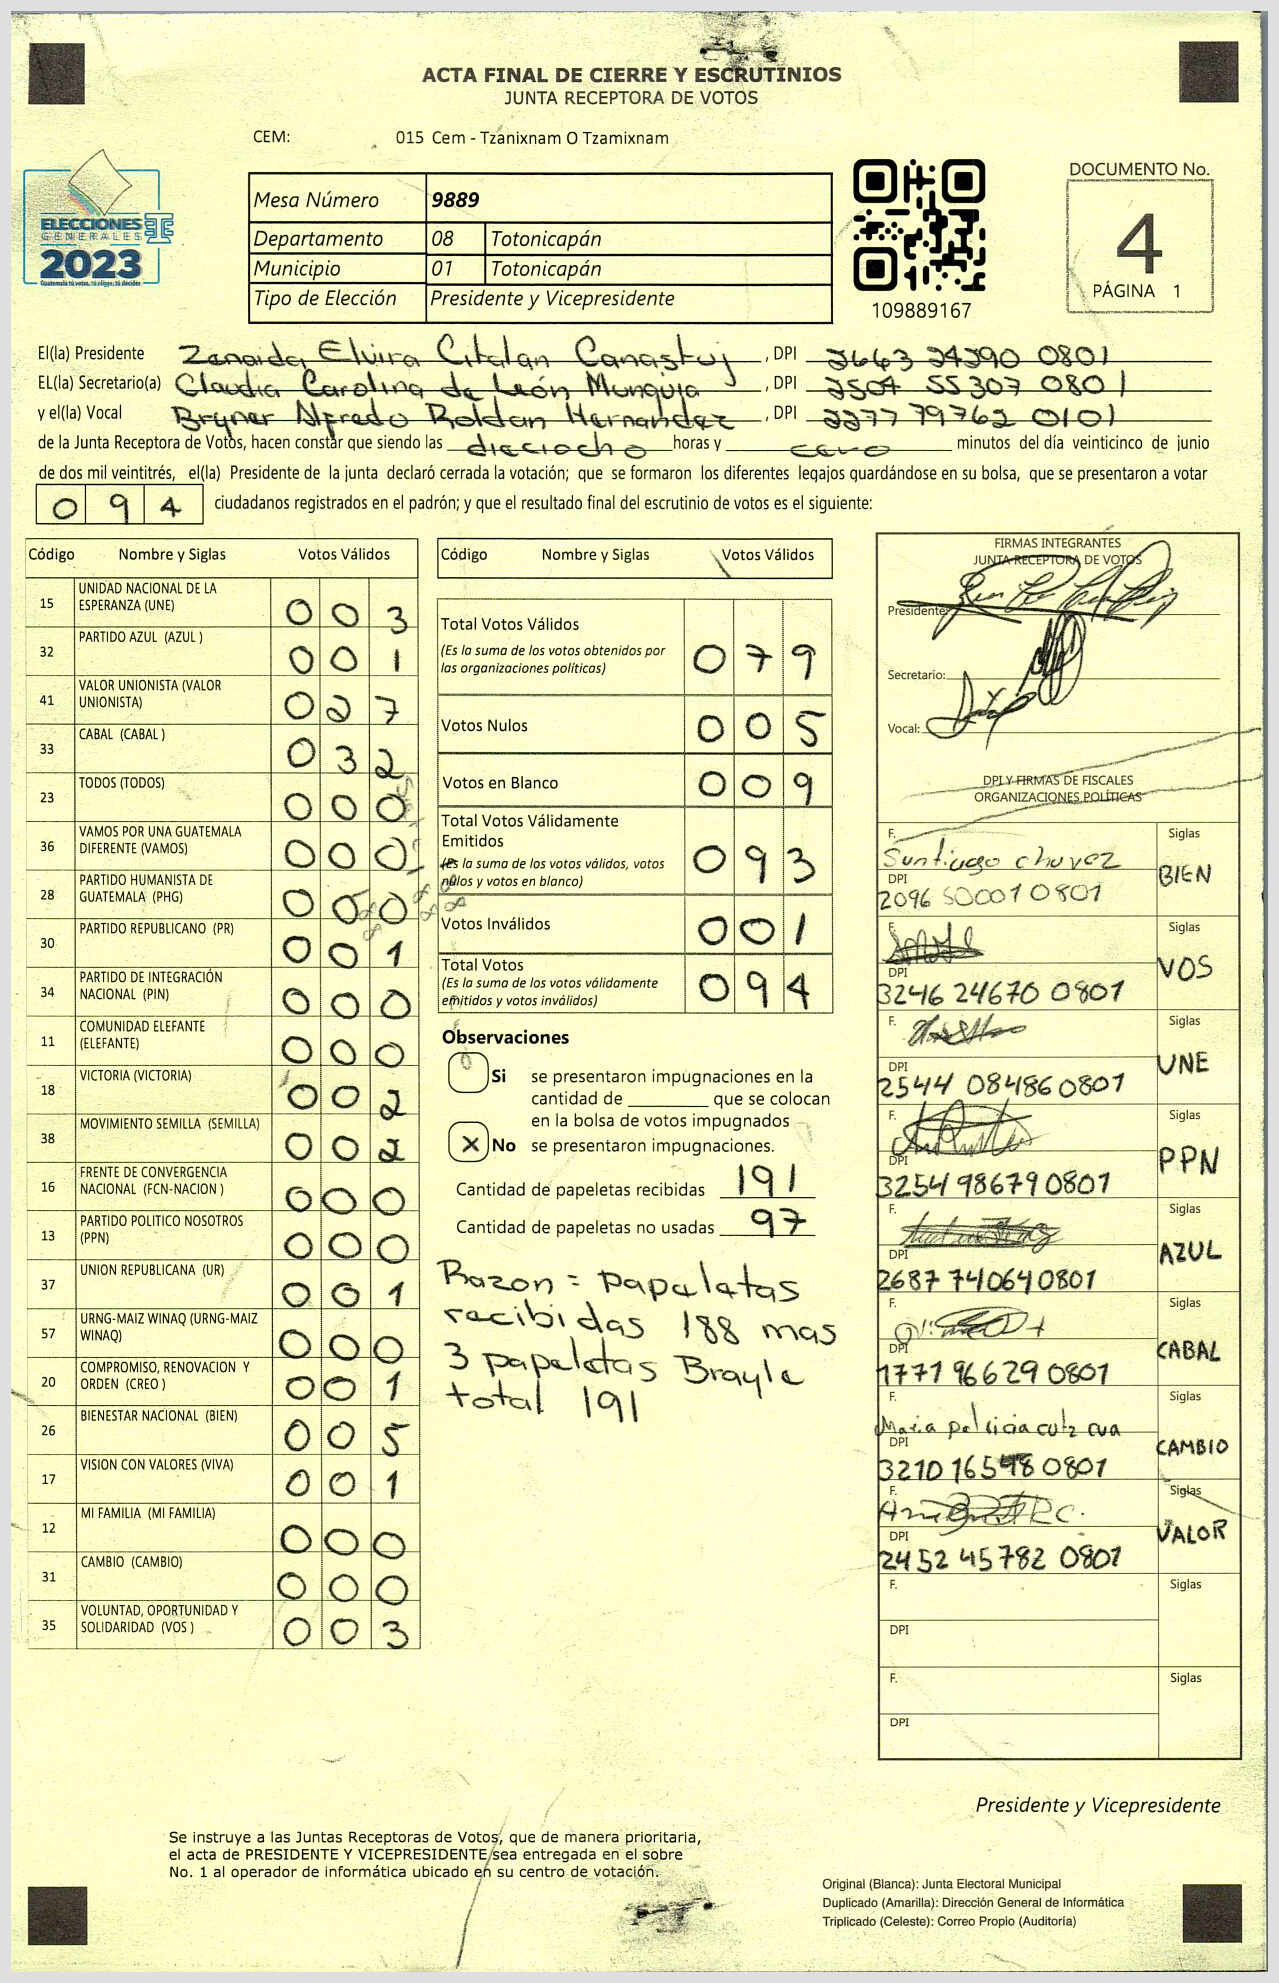 ACTA FINAL DE CIERRE Y ESCRUTINIOS
JUNTA RECEPTORA DE VOTOS
CEM: 015 Cem - Tzanixnam O Tzamixnam
ELECCIONES
GENERALES
2023
Guatemala tú votas, tú eliges, tú decides
Mesa Número 9889
Departamento 08 Totonicapán
Municipio 01 Totonicapán
Tipo de Elección Presidente y Vicepresidente
109889167
DOCUMENTO No.
4
PÁGINA 1
El(la) Presidente Zenaida Elvira Citalan Canastuj, DPI 2663 24290 0801
EL(la) Secretario(a) Claudia Carolina de León Munguia, DPI 2504 55307 0801
y el(la) Vocal Bryner Alfredo Roldan Hernandez, DPI 2277 79762 0101
de la Junta Receptora de Votos, hacen constar que siendo las dieciocho horas y cero minutos del día veinticinco de junio
de dos mil veintitrés, el(la) Presidente de la junta declaró cerrada la votación; que se formaron los diferentes legajos guardándose en su bolsa, que se presentaron a votar
094 ciudadanos registrados en el padrón; y que el resultado final del escrutinio de votos es el siguiente:
Código Nombre y Siglas Votos Válidos
15 UNIDAD NACIONAL DE LA
ESPERANZA (UNE) 003
32 PARTIDO AZUL (AZUL ) 001
41 VALOR UNIONISTA (VALOR
UNIONISTA) 027
33 CABAL (CABAL ) 032
23 TODOS (TODOS) 000
36 VAMOS POR UNA GUATEMALA
DIFERENTE (VAMOS) 000
28 PARTIDO HUMANISTA DE
GUATEMALA (PHG) 000
30 PARTIDO REPUBLICANO (PR) 001
34 PARTIDO DE INTEGRACIÓN
NACIONAL (PIN) 000
11 COMUNIDAD ELEFANTE
(ELEFANTE) 000
18 VICTORIA (VICTORIA) 002
38 MOVIMIENTO SEMILLA (SEMILLA) 002
16 FRENTE DE CONVERGENCIA
NACIONAL (FCN-NACION ) 000
13 PARTIDO POLITICO NOSOTROS
(PPN) 000
37 UNION REPUBLICANA (UR) 001
57 URNG-MAIZ WINAQ (URNG-MAIZ
WINAQ) 000
20 COMPROMISO, RENOVACION Y
ORDEN (CREO ) 001
26 BIENESTAR NACIONAL (BIEN) 005
17 VISION CON VALORES (VIVA) 001
12 MI FAMILIA (MI FAMILIA) 000
31 CAMBIO (CAMBIO) 000
35 VOLUNTAD, OPORTUNIDAD Y
SOLIDARIDAD (VOS ) 003
Código Nombre y Siglas Votos Válidos
Total Votos Válidos 079
(Es la suma de los votos obtenidos por
las organizaciones políticas)
Votos Nulos 005
Votos en Blanco 009
Total Votos Válidamente
Emitidos 093
(Es la suma de los votos válidos, votos
nulos y votos en blanco)
Votos Inválidos 001
Total Votos 094
(Es la suma de los votos válidamente
emitidos y votos inválidos)
Observaciones
Si se presentaron impugnaciones en la
cantidad de ________ que se colocan
en la bolsa de votos impugnados
X No se presentaron impugnaciones.
Cantidad de papeletas recibidas 191
Cantidad de papeletas no usadas 97
Razon = papeletas
recibidas 188 mas
3 papeletas Brayle
total 191
FIRMAS INTEGRANTES
JUNTA RECEPTORA DE VOTOS
Presidente:
Secretario:
Vocal:
DPI Y FIRMAS DE FISCALES
ORGANIZACIONES POLÍTICAS
F. Santiago chavez Siglas
DPI BIEN
2096 50001 0801
F. Siglas
DPI VOS
3246 24670 0801
F. Siglas
DPI UNE
2544 08486 0801
F. Siglas
DPI PPN
3254 98679 0801
F. Siglas
DPI AZUL
2687 74064 0801
F. Siglas
DPI CABAL
1771 96629 0801
F. Maria patricia cutz cua Siglas
DPI CAMBIO
3210 16598 0801
F. Siglas
DPI VALOR
2452 45782 0801
F. Siglas
DPI
F. Siglas
DPI
Presidente y Vicepresidente
Se instruye a las Juntas Receptoras de Votos, que de manera prioritaria,
el acta de PRESIDENTE Y VICEPRESIDENTE sea entregada en el sobre
No. 1 al operador de informática ubicado en su centro de votación.
Original (Blanca): Junta Electoral Municipal
Duplicado (Amarilla): Dirección General de Informática
Triplicado (Celeste): Correo Propio (Auditoría)